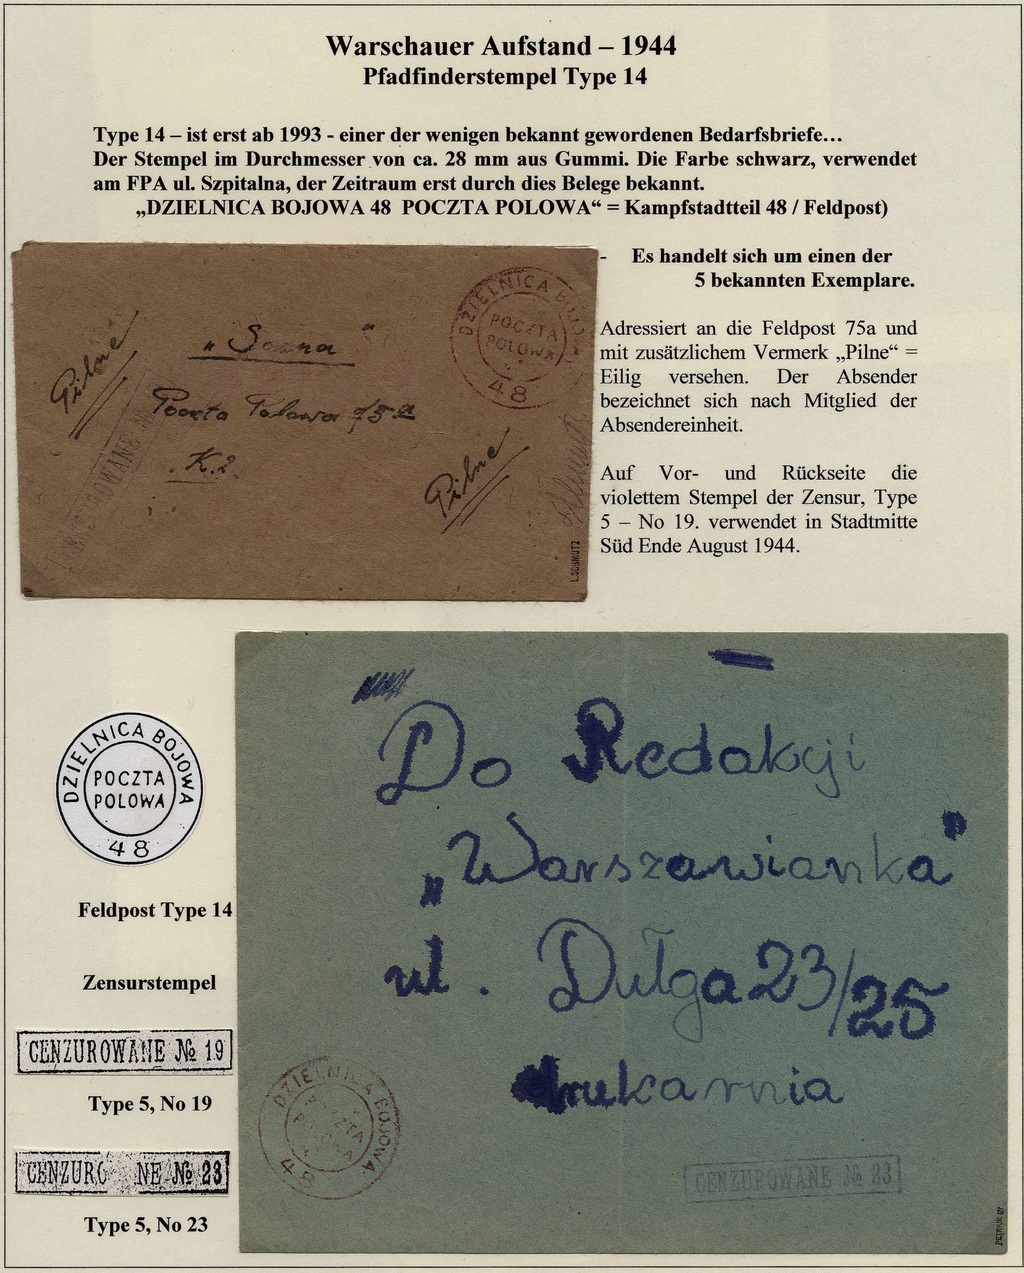 Warschauer Aufstand – 1944
Pfadfinderstempel Type 14
Type 14 – ist erst ab 1993 - einer der wenigen bekannt gewordenen Bedarfsbriefe…
Der Stempel im Durchmesser von ca. 28 mm aus Gummi. Die Farbe schwarz, verwendet
am FPA ul. Szpitalna, der Zeitraum erst durch dies Belege bekannt.
„DZIELNICA BOJOWA 48 POCZTA POLOWA“ = Kampfstadtteil 48 / Feldpost)
- Es handelt sich um einen der
5 bekannten Exemplare.
Adressiert an die Feldpost 75a und
mit zusätzlichem Vermerk „Pilne“ =
Eilig versehen. Der Absender
bezeichnet sich nach Mitglied der
Absendereinheit.
Auf Vor- und Rückseite die
violettem Stempel der Zensur, Type
5 – No 19. verwendet in Stadtmitte
Süd Ende August 1944.
Pilne
" Sosna "
Poczta Polowa 75a
K.2.
Pilne
DZIELNICA BOJOWA
POCZTA
POLOWA
48
CENZUROWANE №
L.SCHMUTZ
DZIELNICA BOJOWA
POCZTA
POLOWA
48
Feldpost Type 14
Zensurstempel
CENZUROWANE № 19
Type 5, No 19
CENZURO NE № 23
Type 5, No 23
Do Redakcji
„Warszawianka"
ul. Dułga 23/25
drukarnia
DZIELNICA BOJOWA
POCZTA
POLOWA
48
CENZUROWANE № 23